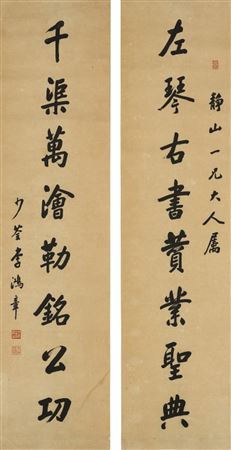 靜山一兄大人屬
左琴右書賛業聖典
千渠萬澮勒銘公功
少荃李鴻章